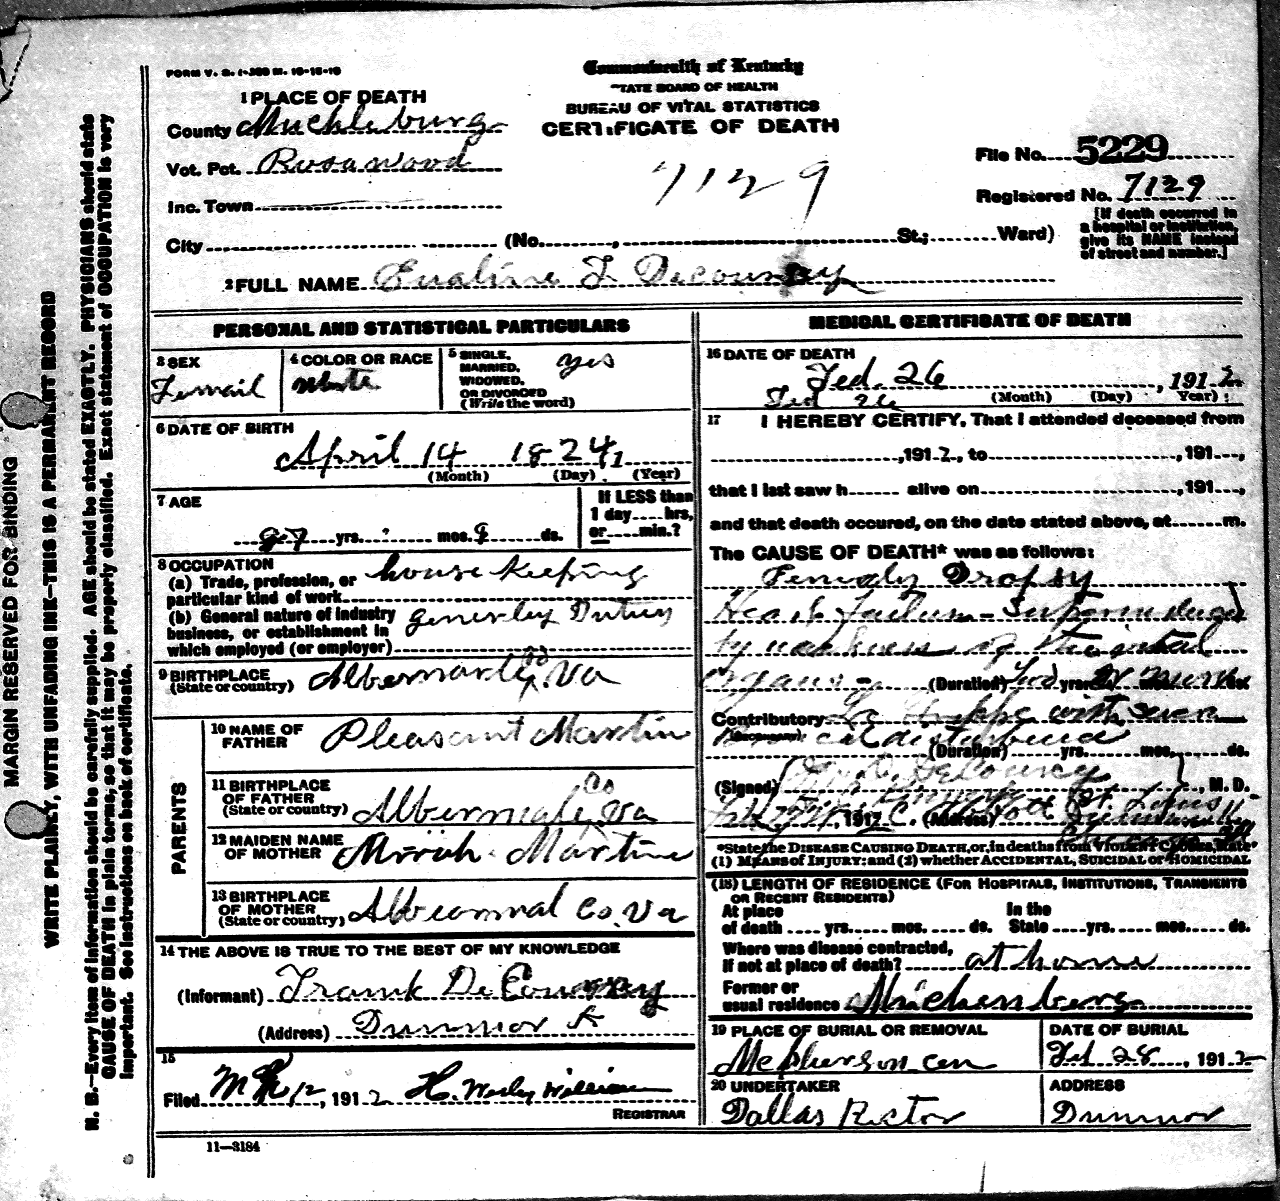 FORM V. S. 1-350 M. 10-15-10
Commonwealth of Kentucky
STATE BOARD OF HEALTH
BUREAU OF VITAL STATISTICS
CERTIFICATE OF DEATH
1 PLACE OF DEATH
County Muchleburg
Vot. Pct. Rosawood
Inc. Town
City (No. , St.; Ward)
7129
File No. 5229
Registered No. 7129
[If death occurred in
a hospital or institution,
give its NAME instead
of street and number.]
2 FULL NAME Evaline F Decoursey
PERSONAL AND STATISTICAL PARTICULARS
3 SEX
Femail
4 COLOR OR RACE
White
5 SINGLE,
MARRIED,
WIDOWED,
OR DIVORCED
(Write the word)
yes
6 DATE OF BIRTH
April 14 1824
(Month) (Day) (Year)
7 AGE
87 yrs. mos. ds.
If LESS than
1 day hrs,
or min.?
8 OCCUPATION
(a) Trade, profession, or
particular kind of work
house keeping
(b) General nature of industry
business, or establishment in
which employed (or employer)
generley Duties
9 BIRTHPLACE
(State or country)
Albermarle co Va
PARENTS
10 NAME OF
FATHER
Pleasant Martin
11 BIRTHPLACE
OF FATHER
(State or country)
Albermale Co Va
12 MAIDEN NAME
OF MOTHER
Martin
13 BIRTHPLACE
OF MOTHER
(State or country)
Albeomral Co. Va
14 THE ABOVE IS TRUE TO THE BEST OF MY KNOWLEDGE
(Informant) Frank DeCoursey
(Address) Dunmor
15
Filed 12, 1912 H. Wesly Williams
REGISTRAR
11—3184
MEDICAL CERTIFICATE OF DEATH
16 DATE OF DEATH
Feb. 26, 1912
Feb 26 (Month) (Day) Year)
17 I HEREBY CERTIFY, That I attended deceased from
, 1912, to , 191 ,
that I last saw h alive on , 191 ,
and that death occured, on the date stated above, at m.
The CAUSE OF DEATH* was as follows:
Dropsy
Heart Failure - Superinduced
by weakness of the vital
organs - (Duration) yrs. mos. ds.
Contributory La Grippe with
disturbance
(Duration) yrs. mos. ds.
(Signed) DeCoursey , M. D.
1912 (Address) St. Louis
Chicago Ill
*State the DISEASE CAUSING DEATH, or, in deaths from Violent Causes, state
(1) MEANS OF INJURY: and (2) whether ACCIDENTAL, SUICIDAL or HOMICIDAL
(18) LENGTH OF RESIDENCE (FOR HOSPITALS, INSTITUTIONS, TRANSIENTS
OR RECENT RESIDENTS)
At place In the
of death yrs. mos. ds. State yrs. mos. ds.
Where was disease contracted,
if not at place of death? at home
Former or
usual residence Muhlenberg
19 PLACE OF BURIAL OR REMOVAL
Mcpherson cem
DATE OF BURIAL
Feb 28, 1912
20 UNDERTAKER
Dallas Rector
ADDRESS
Dunmor
MARGIN RESERVED FOR BINDING
WRITE PLAINLY, WITH UNFADING INK—THIS IS A PERMANENT RECORD
N. B.—Every item of information should be carefully supplied. AGE should be stated EXACTLY. PHYSICIANS should state
CAUSE OF DEATH in plain terms, so that it may be properly classified. Exact statement of OCCUPATION is very
important. See instructions on back of certificate.